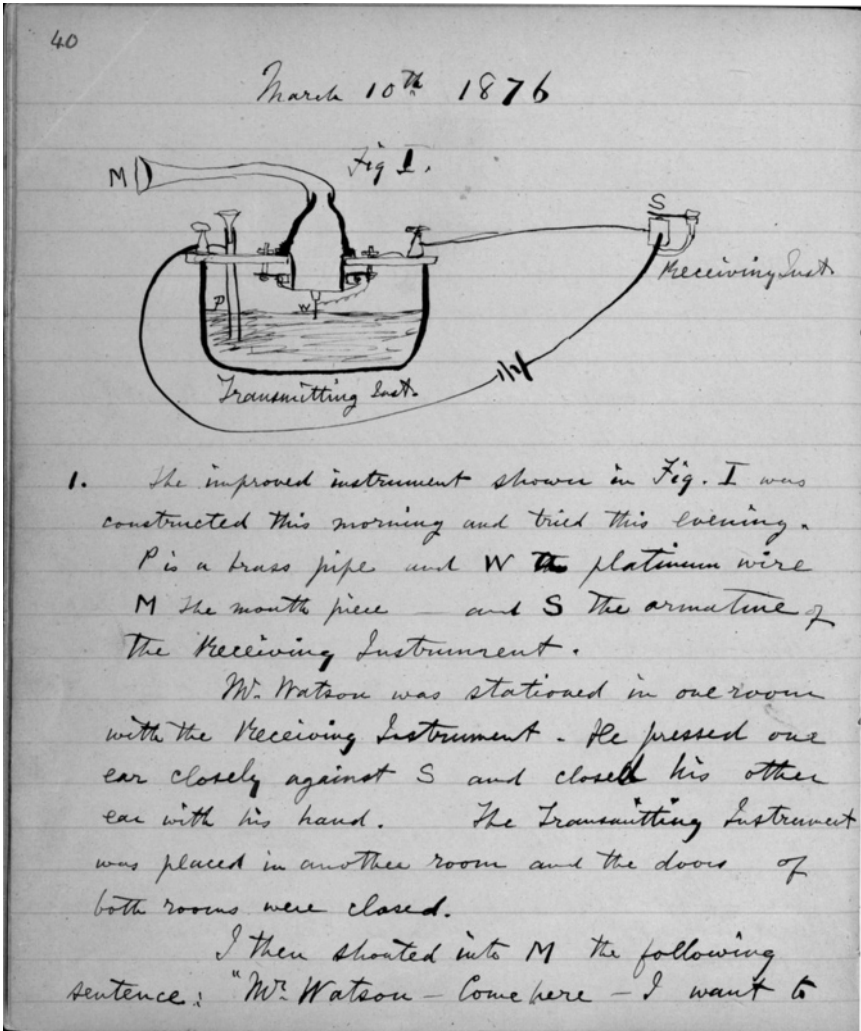 40
March 10th 1876
M
Fig I.
S
Receiving Inst.
P
W
Transmitting Inst.
1. The improved instrument shown in Fig. I was
constructed this morning and tried this evening.
P is a brass pipe and W the platinum wire
M the mouth piece — and S the armature of
the Receiving Instrument.
Mr. Watson was stationed in one room
with the Receiving Instrument. He pressed one
ear closely against S and closed his other
ear with his hand. The Transmitting Instrument
was placed in another room and the doors of
both rooms were closed.
I then shouted into M the following
sentence: "Mr. Watson — Come here — I want to